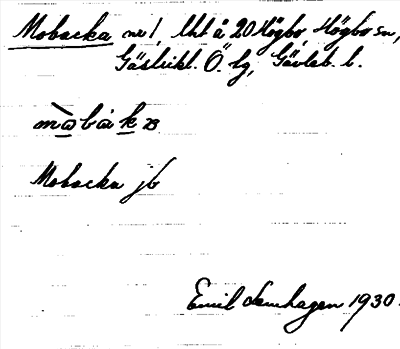 Mobacka nr 1, Uht å 20 Högbo, Högbo sn,
Gästrikl. Ö. tg, Gävleb. l.
Mobacka jb
Emil Lenhagen 1930.